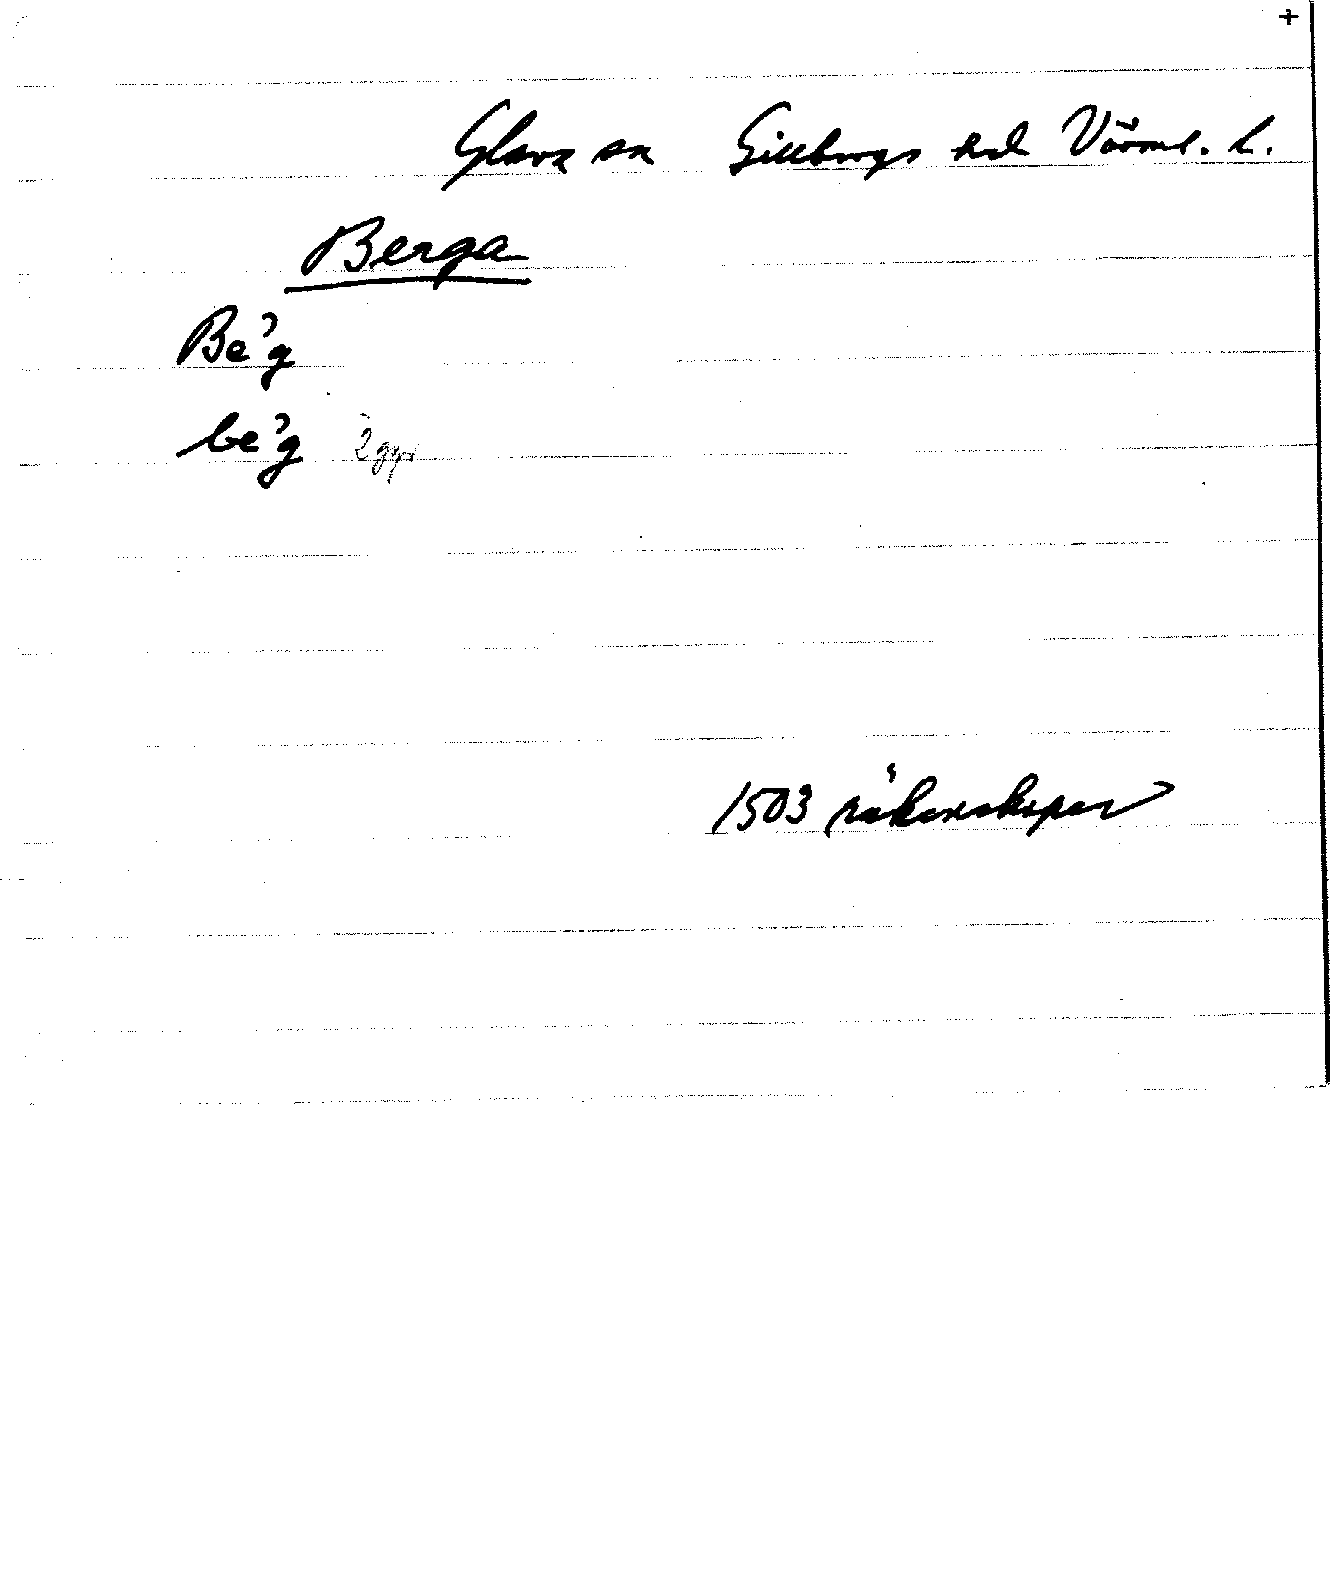 +
Glava sn Gillbergs hd Värml. l.
Berga
Be'g
be'g 2 ggr
1503 räkenskaper